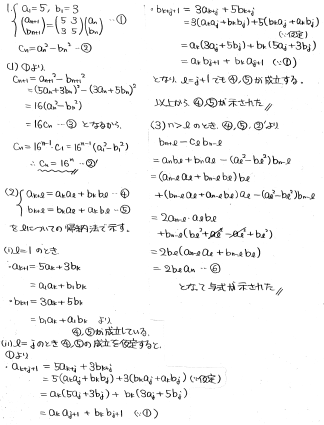 1. { a₁=5, b₁=3
(aₙ₊₁ bₙ₊₁) = (5 3 3 5)(aₙ bₙ) …①
Cₙ=aₙ²−bₙ² …②
(1) ①より、
Cₙ₊₁ = aₙ₊₁² − bₙ₊₁²
= (5aₙ+3bₙ)² − (3aₙ+5bₙ)²
= 16(aₙ²−bₙ²)
= 16Cₙ …③ となるから、
Cₙ = 16ⁿ⁻¹・C₁ = 16ⁿ⁻¹(a₁²−b₁²)
∴ Cₙ = 16ⁿ …②'
(2) { aₖ₊ℓ = aₖaℓ + bₖbℓ …④
bₖ₊ℓ = bₖaℓ + aₖbℓ …⑤
をℓについての帰納法で示す。
(i) ℓ=1のとき
・aₖ₊₁ = 5aₖ+3bₖ
= a₁aₖ + b₁bₖ
・bₖ₊₁ = 3aₖ + 5bₖ
= b₁aₖ + a₁bₖ より
④,⑤が成立している。
(ii) ℓ=jのとき④,⑤の成立を仮定すると、
①より
・aₖ₊ⱼ₊₁ = 5aₖ₊ⱼ + 3bₖ₊ⱼ
= 5(aₖaⱼ+bₖbⱼ)+3(bₖaⱼ+aₖbⱼ) (∵仮定)
= aₖ(5aⱼ+3bⱼ) + bₖ(3aⱼ+5bⱼ)
= aₖaⱼ₊₁ + bₖbⱼ₊₁ (∵①)
・bₖ₊ⱼ₊₁ = 3aₖ₊ⱼ + 5bₖ₊ⱼ
= 3(aₖaⱼ+bₖbⱼ)+5(bₖaⱼ+aₖbⱼ)
(∵仮定)
= aₖ(3aⱼ+5bⱼ) + bₖ(5aⱼ+3bⱼ)
= aₖbⱼ₊₁ + bₖaⱼ₊₁ (∵①)
となり、ℓ=j+1でも④,⑤が成立する。
以上から、④,⑤が示された
(3) n>ℓのとき、④,⑤,②'より
bₙ₊ℓ − Cℓbₙ₋ℓ
= aₙbℓ + bₙaℓ − (aℓ²−bℓ²)bₙ₋ℓ
= (aₙ₋ℓaℓ + bₙ₋ℓbℓ)bℓ
+ (bₙ₋ℓaℓ + aₙ₋ℓbℓ)aℓ − (aℓ²−bℓ²)bₙ₋ℓ
= 2aₙ₋ℓ・aℓbℓ
+ bₙ₋ℓ(bℓ²+aℓ²−aℓ²+bℓ²)
= 2bℓ(aₙ₋ℓaℓ + bₙ₋ℓbℓ)
= 2bℓaₙ …⑥
となって与式が示された